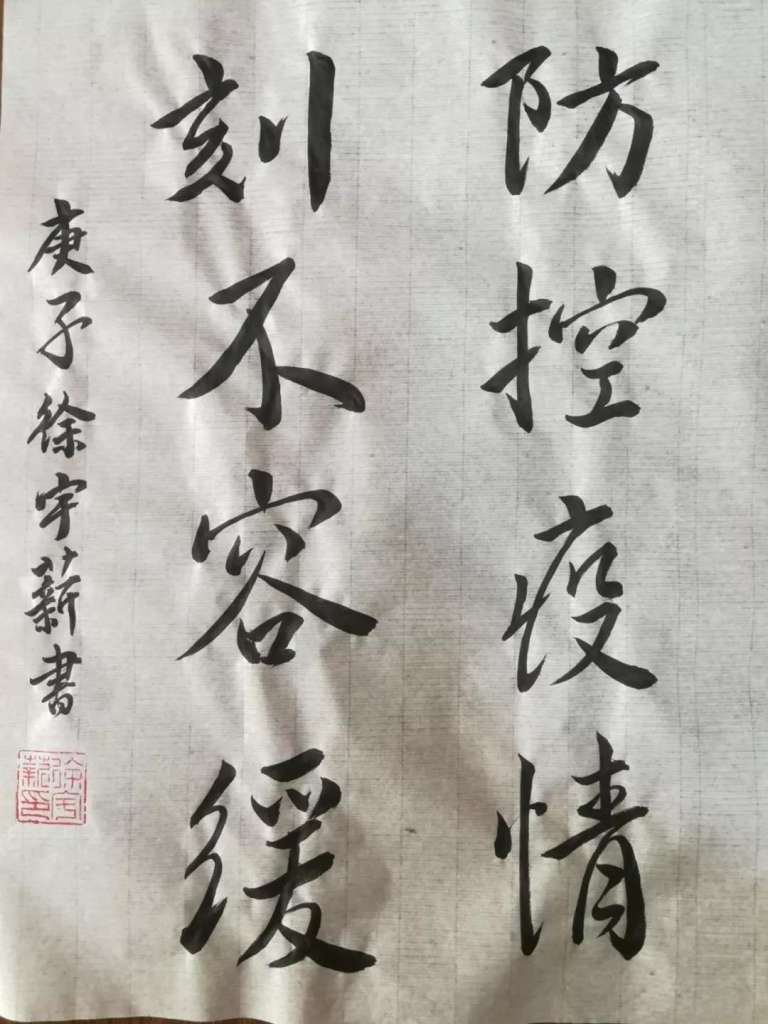 防控疫情
刻不容缓
庚子徐宇薪書
徐宇薪印